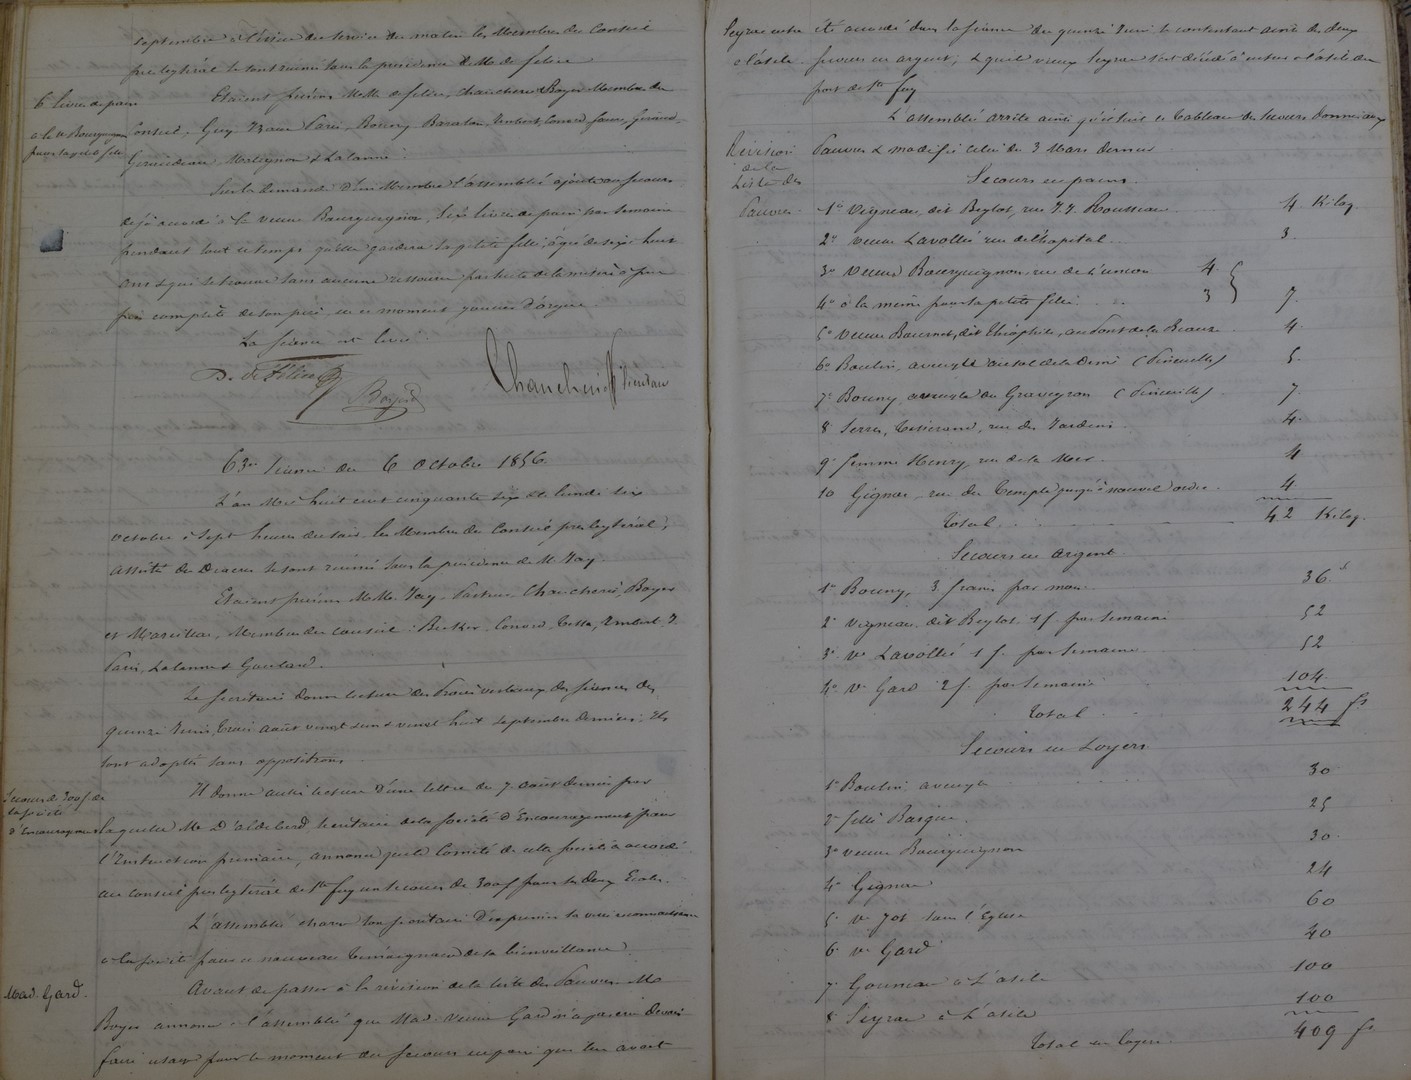 septembre à l'issue du service du matin les Membres du Conseil
presbytéral se sont réunis sous la présidence de M. de félice
6 livres de pain
à la Ve Bourguignon
pour sa petite fille
Etaient présens MM. de felice, Chaucherie Boyer Membres du
Conseil, Guy, Paris, Bouny, Conord, faure, Giraud,
Martignon & Lalanne.
Sur la demande d'un Membre l'assemblée ajoute au secours
déjà accordé à la veuve Bourguignon, Six livres de pain par semaine
pendant tout le temps qu'elle gardera sa petite fille, agée de dix huit
ans & qui se trouve sans aucune ressource par suite de la misère à peu
près complète de son père, en ce moment joueur d'orgue.
La séance est levée.
D. de Félice
Boyer
Chaucherie
63e Séance du 6 Octobre 1856
L'an Mil huit cent cinquante six & le lundi six
octobre à sept heures du soir les Membres du Conseil presbytéral,
assisté des Diacres se sont réunis sous la présidence de M. Jay.
Etaient présens MM. Jay Pasteur Chaucherie, Boyer
et Mareilhac, Membres du conseil. Conord, Testa, Imbert, J.
Paris, Lalanne & Goulard.
Le Secrétaire donne lecture des Procès verbaux des séances des
quinze Juin, trois août vingt un & vingt huit septembre derniers; Ils
sont adoptés sans oppositions.
Secours de 300 f. de
la Société
d'Encouragement
Il donne aussi lecture d'une lettre du 7 août dernier par
laquelle M. secrétaire de la Société d'Encouragement pour
l'Instruction primaire, annonce que le Comité de cette société a accordé
au conseil presbytéral de Ste foy un secours de 300 f pour les deux Ecoles.
L'assemblée charge son secrétaire d'exprimer sa vive reconnaissance
à la société pour ce nouveau témoignage de sa bienveillance.
Mad. Gard.
Avant de passer à la révision de la liste des Pauvres M.
Boyer annonce à l'assemblée que Mad. Veuve Gard n'a pas cru devoir
faire usage pour le moment du secours en pain qui lui avait
Seyrac entre
à l'asile.
été accordé dans la séance du quinze Juin se contentant ainsi de deux
secours en argent; & que le vieux Seyrac s'est décidé à entrer à l'asile du
port de Ste foy
L'assemblée arrête ainsi qu'il suit le Tableau des secours donnés aux
Révision
de la
Liste des
Pauvres
Pauvres & modifie celui du 3 Mars dernier
Secours en pains.
1° Vigneau, dit Beylot, rue J.J. Rousseau 4 Kilog
2° veuve Lavollée rue de l'hopital 3.
3° Veuve Bourguignon, rue de l'union 4
4° à la même pour sa petite fille 3 } 7.
5° Veuve dit Théophile, au Pont de la Beauze 4.
6° Boulin, aveugle (Pineuilh) 5.
7° Bouny, au Graveyron (Pineuilh) 7.
8° Serres, tisserand, rue des Jardins 4.
9° femme Henry, rue de la Mer 4
10 Gignac, rue du Temple jusqu'à nouvel ordre. 4
Total 42 Kilog.
Secours en Argent.
1° Bouny, 3 francs par mois 36 f
2° Vigneau, dit Beylot 1 f. par semaine 52
3° Ve Lavollée 1 f. par semaine. 52
4° Ve Gard 2 f. par semaine 104
Total 244 fs
Secours en Loyers
1° Boulin, aveugle 30
2° fille Barque. 25
3° veuve Bourguignon 30.
4° Gignac 24
5° Ve Jos sous l'Eglise 60
6° Ve Gard 40
7° Gouneau à L'asile 100
8° Seyrac à L'asile 100
Total en loyers 409 fs